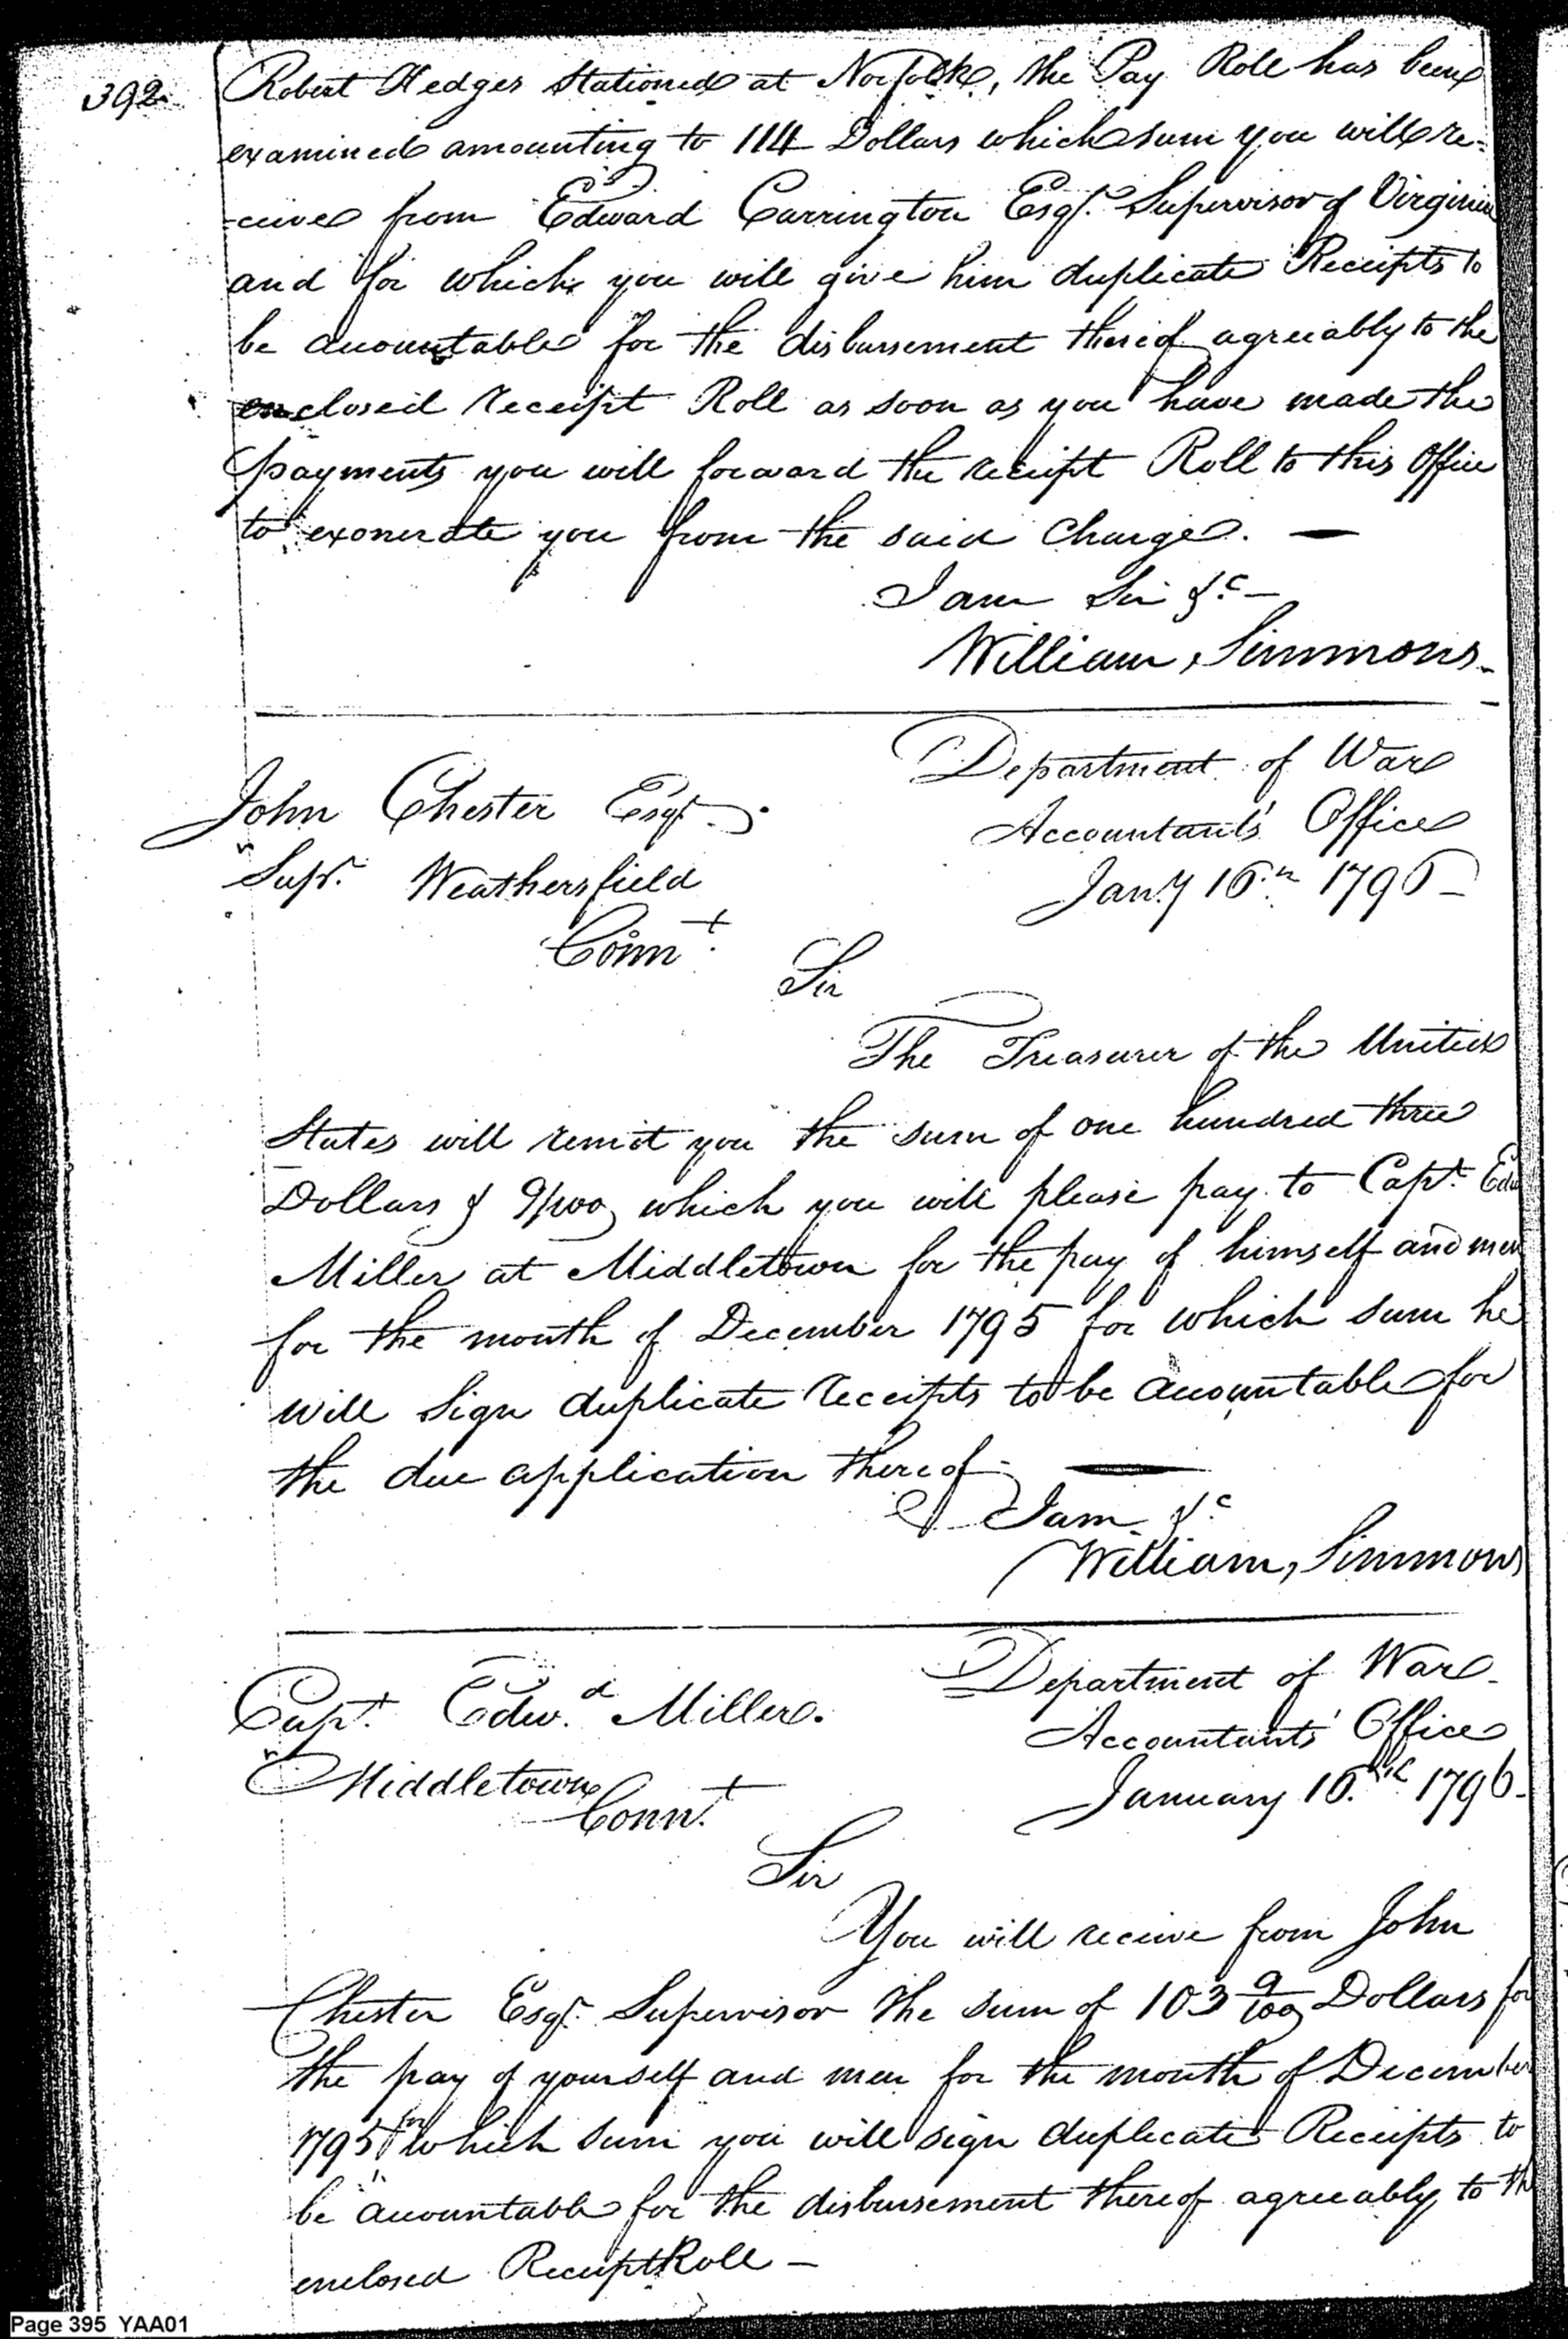 392
Robert Hedges Stationed at Norfolk, the Pay Roll has been
examined amounting to 114 Dollars which sum you will re-
-ceive from Edward Carrington Esqr. Supervisor of Virginia
and for which you will give him duplicate Receipts to
be accountable for the disbursement thereof agreeably to the
enclosed receipt Roll as soon as you have made the
payments you will forward the receipt Roll to this Office
to exonerate you from the said Charge. —
I am Sir &c —
William Simmons
Department of War
John Chester Esqr.
Accountants' Office
Supr. Weathersfield
Jany 16th 1796
Connt.
Sir
The Treasurer of the United
States will remit you the sum of one hundred three
Dollars & 9/100 which you will please pay to Capt. Edw
Miller at Middletown for the pay of himself and men
for the month of December 1795 for which sum he
will Sign duplicate receipts to be accountable for
the due application thereof. —
I am &c
William Simmons
Department of War
Capt. Edwd. Miller.
Accountants' Office
Middletown
January 16th 1796.
Connt.
Sir
You will receive from John
Chester Esqr. Supervisor the sum of 103 9/100 Dollars for
the pay of yourself and men for the month of December
1795 for which sum you will sign duplicate Receipts to
be accountable for the disbursement thereof agreeably to th
enclosed Receipt Roll —
Page 395 YAA01